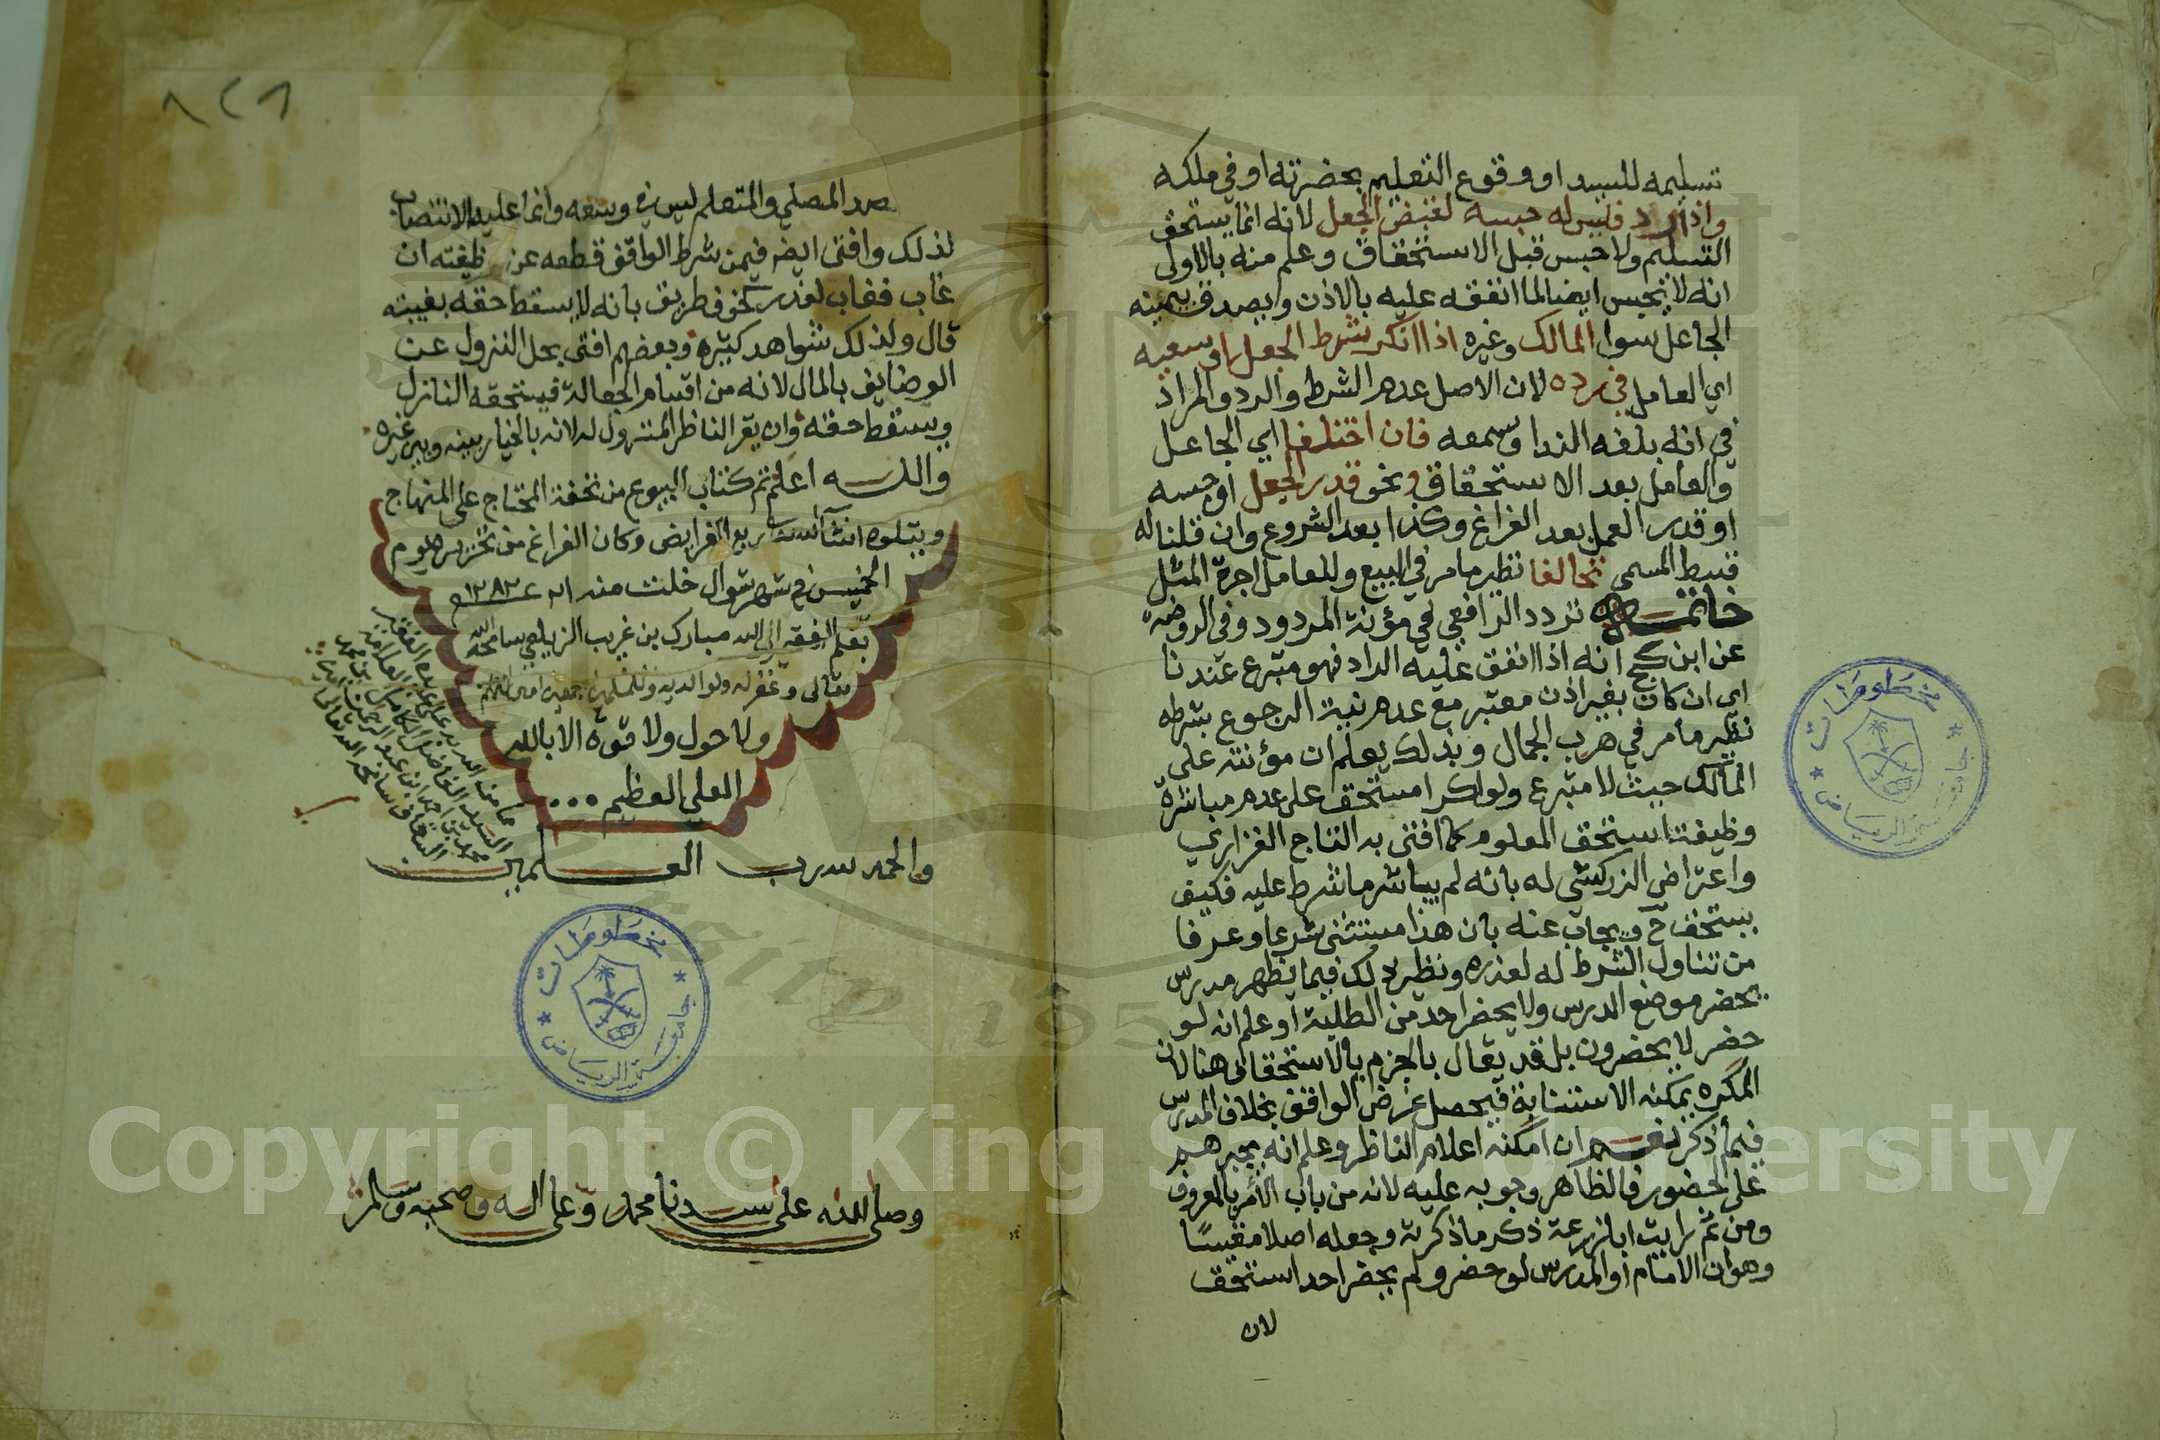 تسليمه للسيد او وقوع التعليم بحضرته او في ملكه
واذا رد فليس له حبسه لقبض الجعل لانه انما يستحق
التسليم ولا حبس قبل الاستحقاق وعلم منه بالاولى
انه لا يحبس ايضا لما انفقه عليه بالاذن ويصدق بيمينه
الجاعل سواء المالك وغيره اذا انكر شرط الجعل او سعيه
اي العامل في رده لان الاصل عدم الشرط والرد والمراد
في انه بلغه الندا وسمعه فان اختلفا اي الجاعل
والعامل بعد الاستحقاق في نحو قدر الجعل او جنسه
او قدر العمل بعد الفراغ وكذا بعد الشروع وان قلنا له
قسط المسمى تحالفا نظير ما مر في البيع وللعامل اجرة المثل
خاتمة تردد الرافعي في مؤنة المردود وفي الروضة
عن ابن كج انه اذا انفق عليه الراد فهو متبرع عندنا
اي ان كان بغير اذن معتبر مع عدم نية الرجوع بشرطه
نظير ما مر في هرب الجمال وبذلك يعلم ان مؤنته على
المالك حيث لا متبرع ولو اكره مستحق على عدم مباشرة
وظيفته استحق المعلوم كما افتى به التاج الفزاري
واعتراض الزركشي له بانه لم يباشر ما شرط عليه فكيف
يستحق ح ويجاب عنه بان هذا مستثنى شرعا وعرفا
من تناول الشرط له لعذره ونظير ذلك فيما يظهر مدرس
يحضر موضع الدرس ولا يحضر احد من الطلبة او علم انه لو
حضر لا يحضرون بل قد يقال بالجزم بالاستحقاق هنا لان
المكره يمكنه الاستنابة فيحصل غرض الواقف بخلاف المدرس
فيما ذكر نعم ان امكنه اعلام الناظر وعلم انه يجبرهم
على الحضور فالظاهر وجوبه عليه لانه من باب الامر بالمعروف
ومن ثم رايت ابا زرعة ذكر ما ذكرته وجعله اصلا مقيسا
وهو ان الامام او المدرس لو حضر ولم يحضر احد استحق
لان
٨٢٦
المصلي والمتعلم ليس في وسعه وانما عليه الانتصاب
لذلك وافتى ايضا فيمن شرط الواقف قطعه عن وظيفته ان
غاب فغاب لعذر كخوف طريق بانه لا يسقط حقه بغيبته
قال ولذلك شواهد كثيرة وبعضهم افتى بحل النزول عن
الوضايف بالمال لانه من اقسام الجعالة فيستحقه النازل
ويسقط حقه وان يقرر الناظر المنزول له لانه بالخيار بينه وبين غيره
والله اعلم تم كتاب البيوع من تحفة المحتاج على المنهاج
ويتلوه انشآ الله ربع الفرايض وكان الفراغ من تحريره يوم
الخميس في شهر شوال خلت منه ١٢٨٢
بقلم الفقير الى الله مبارك بن غريب الزيلعي سامحه الله
تعالى وغفر له ولوالديه وللمسلمين اجمعين امين
ولا حول ولا قوة الا بالله
العلي العظيم
والحمد لله رب العالمين
وصلى الله على سيدنا محمد وعلى اله وصحبه وسلم
مخطوطات
جامعة الرياض
مخطوطات
جامعة الرياض
Copyright © King Saud University